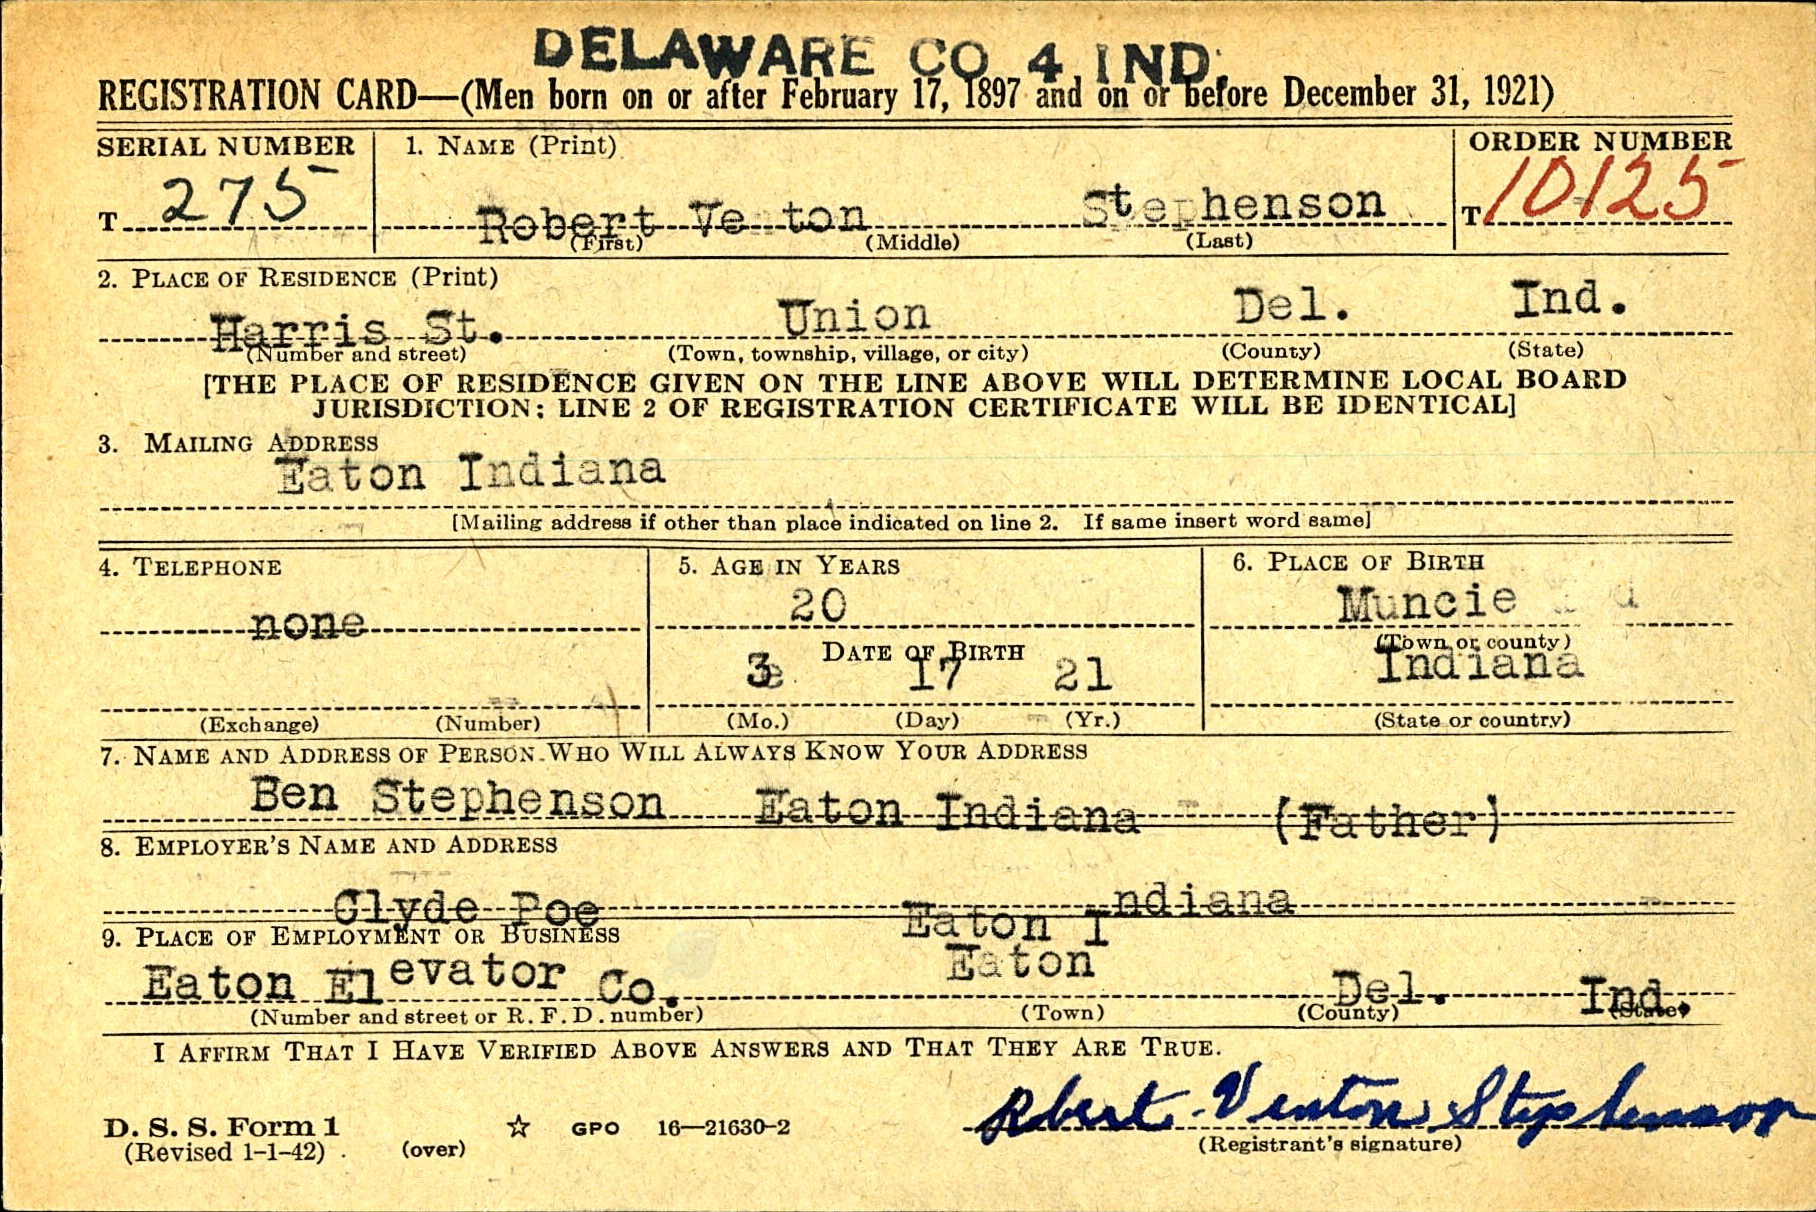 DELAWARE CO 4 IND.
REGISTRATION CARD—(Men born on or after February 17, 1897 and on or before December 31, 1921)
SERIAL NUMBER 1. NAME (Print) ORDER NUMBER
T 275 Robert Ve ton Stephenson T 10125
(First) (Middle) (Last)
2. PLACE OF RESIDENCE (Print)
Harris St. Union Del. Ind.
(Number and street) (Town, township, village, or city) (County) (State)
[THE PLACE OF RESIDENCE GIVEN ON THE LINE ABOVE WILL DETERMINE LOCAL BOARD
JURISDICTION; LINE 2 OF REGISTRATION CERTIFICATE WILL BE IDENTICAL]
3. MAILING ADDRESS
Eaton Indiana
[Mailing address if other than place indicated on line 2. If same insert word same]
4. TELEPHONE 5. AGE IN YEARS 6. PLACE OF BIRTH
none 20 Muncie
DATE OF BIRTH (Town or county)
3 17 21 Indiana
(Exchange) (Number) (Mo.) (Day) (Yr.) (State or country)
7. NAME AND ADDRESS OF PERSON WHO WILL ALWAYS KNOW YOUR ADDRESS
Ben Stephenson Eaton Indiana (Father)
8. EMPLOYER'S NAME AND ADDRESS
Clyde Poe Eaton Indiana
9. PLACE OF EMPLOYMENT OR BUSINESS
Eaton Elevator Co. Eaton Del. Ind.
(Number and street or R. F. D. number) (Town) (County) (State)
I AFFIRM THAT I HAVE VERIFIED ABOVE ANSWERS AND THAT THEY ARE TRUE.
Rbert Venton Stephenson
D. S. S. Form 1 ☆ GPO 16—21630-2 (Registrant's signature)
(Revised 1-1-42) (over)